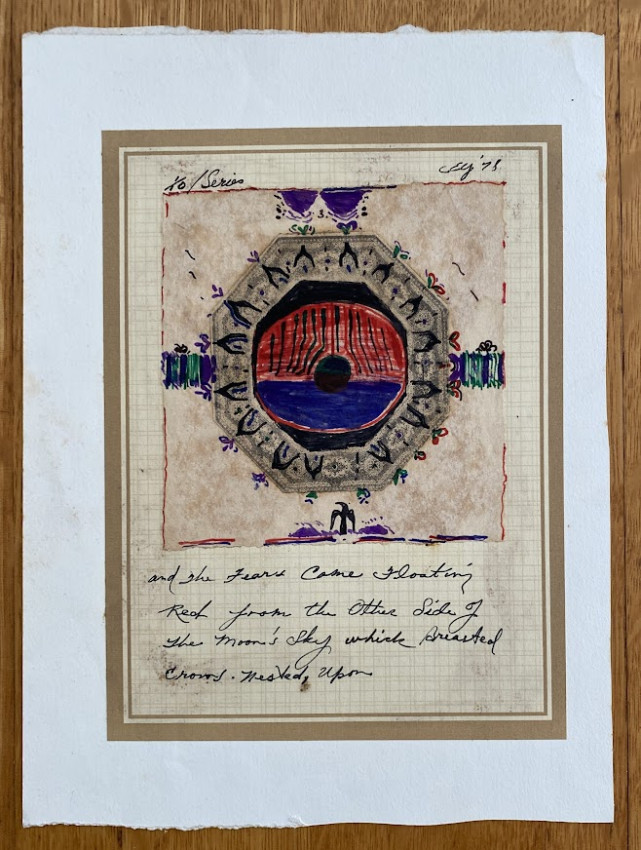 /Series
'78
and the Fears Come Floating
Red from the Other Side of
the Moon's Sky which Breasted
Crows. Nested, Upon